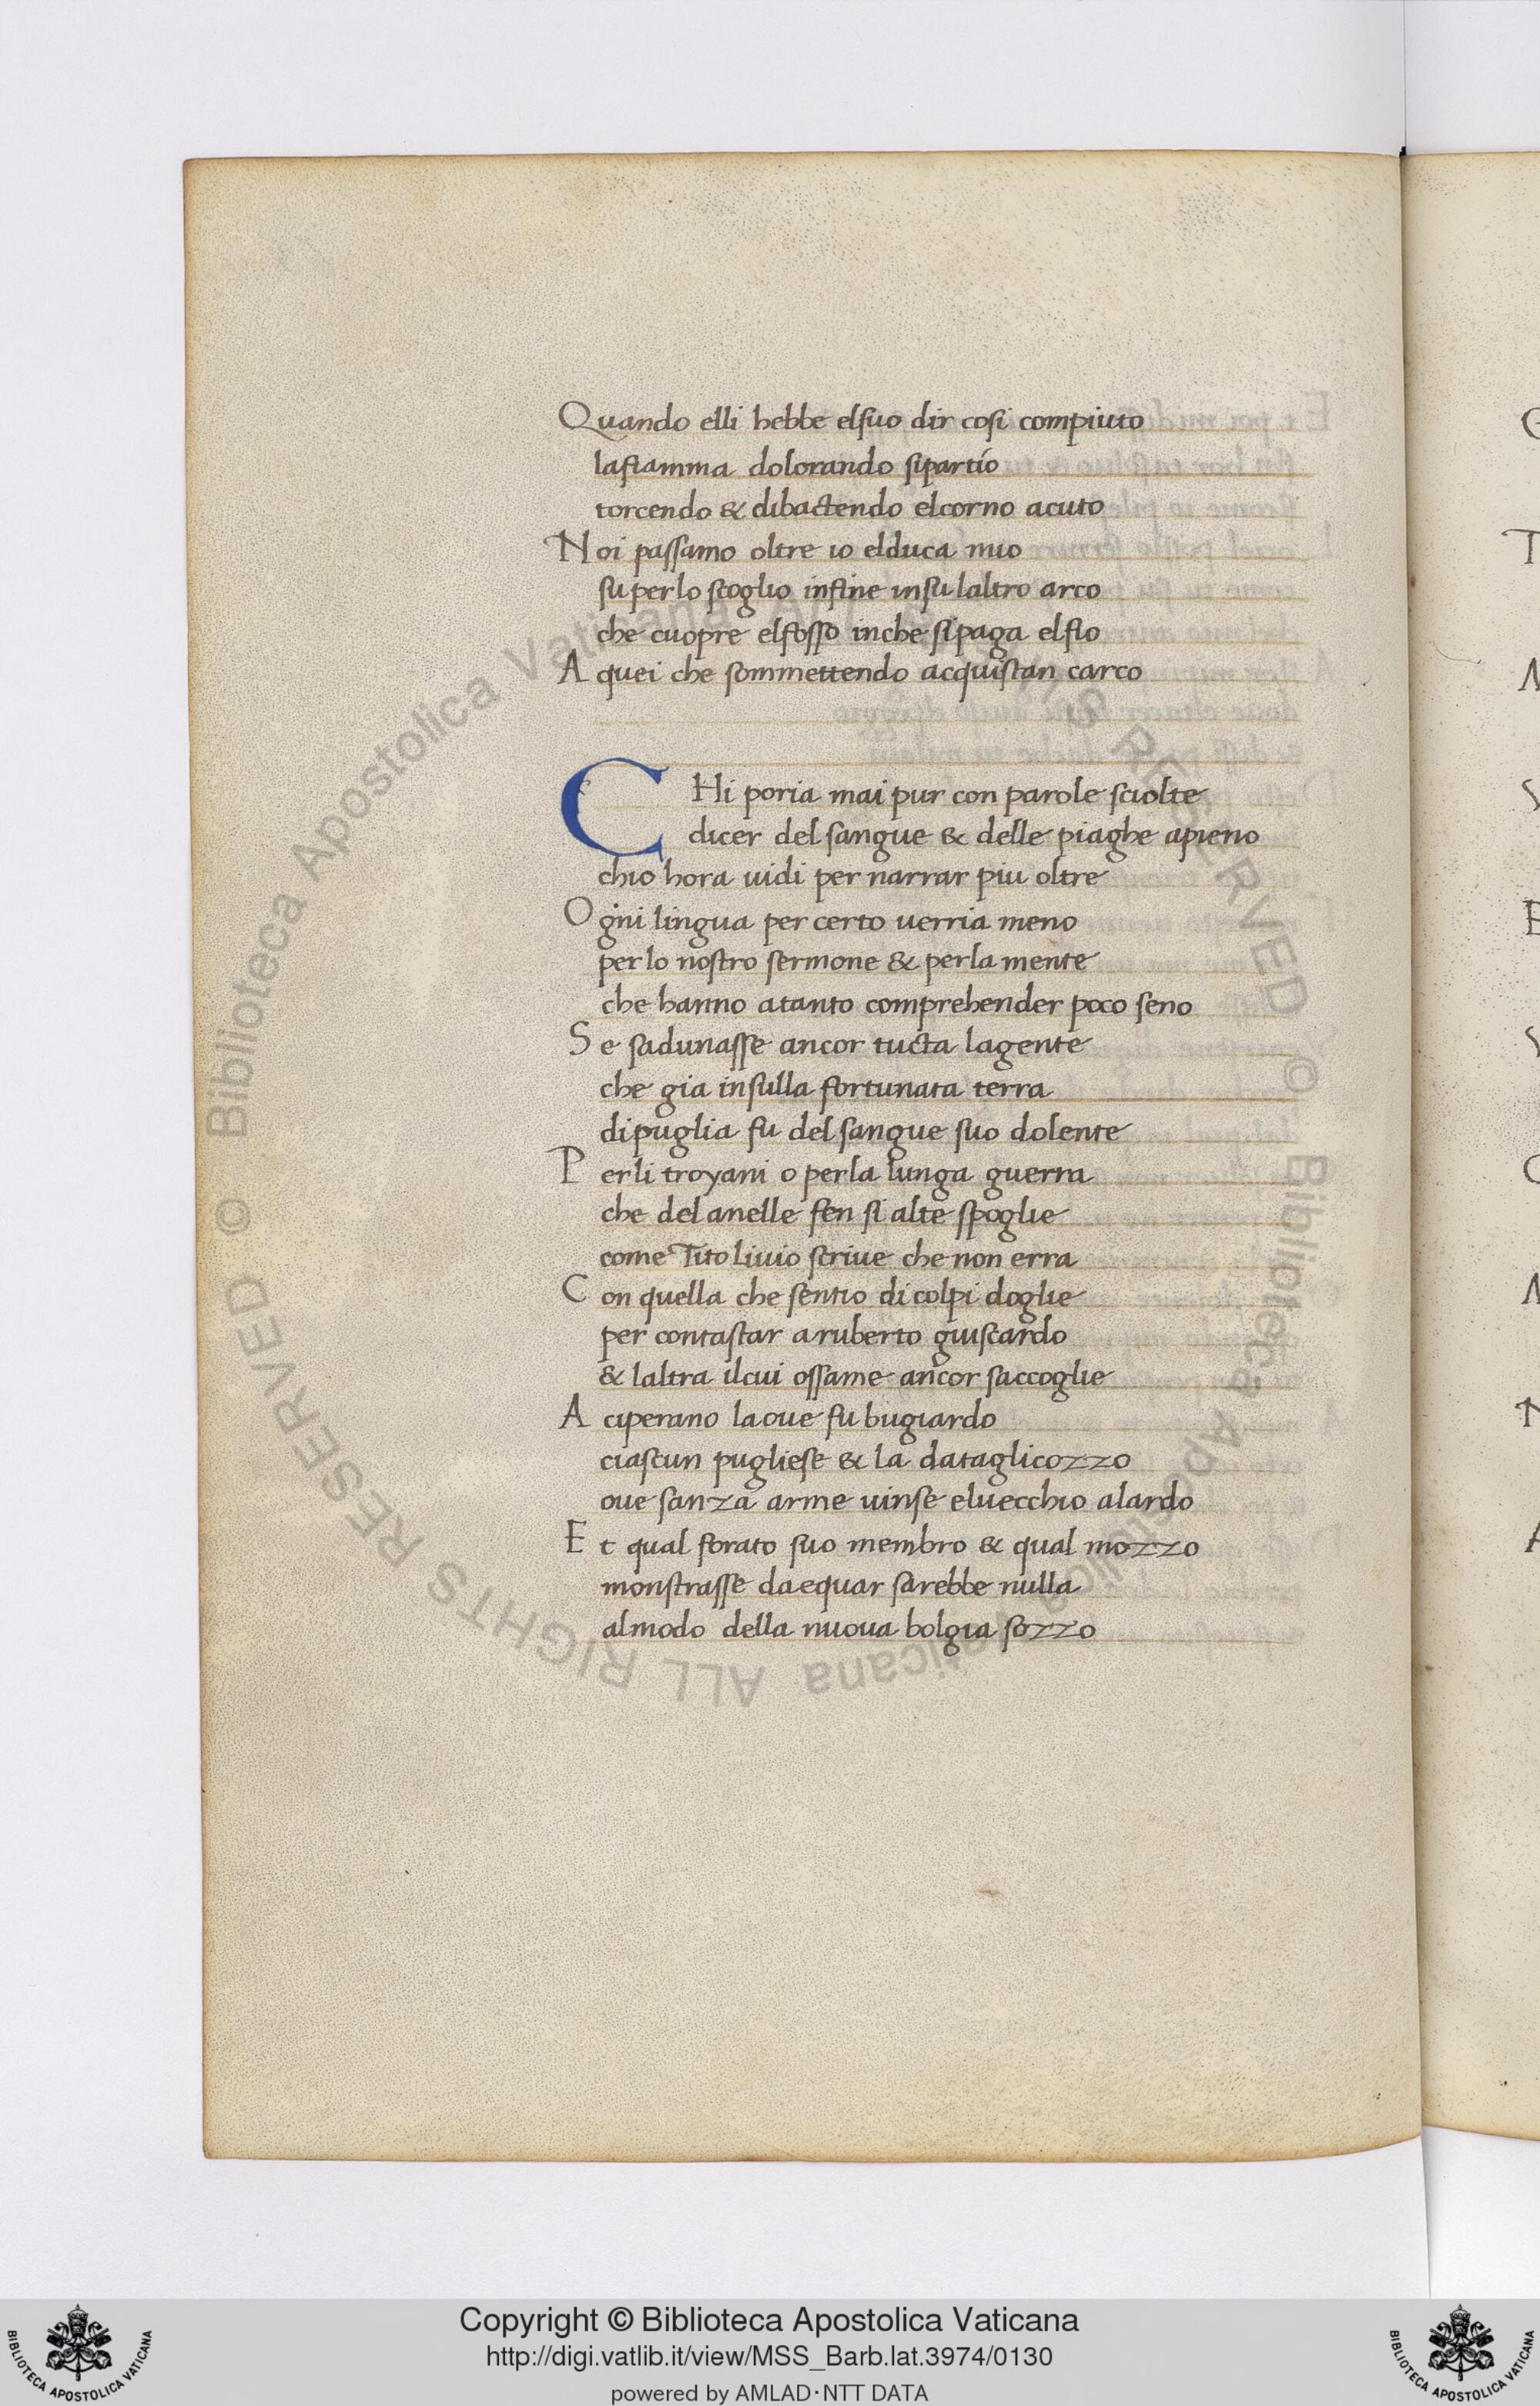 Quando elli hebbe elsuo dir cosi compiuto
lafiamma dolorando sipartío
torcendo & dibactendo elcorno acuto
Noi passamo oltre io elduca mio
su perlo scoglio infine insu laltro arco
che cuopre elfosso inche sipaga elfio
A quei che sommettendo acquistan carco
CHi poria mai pur con parole sciolte
dicer del sangue & delle piaghe apieno
chio hora uidi per narrar piu oltre
Ogni lingua per certo uerria meno
per lo nostro sermone & perla mente
che hanno atanto comprehender poco seno
Se sadunasse ancor tucta lagente
che gia insulla fortunata terra
dipuglia fu del sangue suo dolente
Perli troyani o perla lunga guerra
che delanelle fen si alte spoglie
come Tito Liuio scriue che non erra
Con quella che sentio di colpi doglie
per contastar aruberto guiscardo
& laltra ilcui ossame ancor saccoglie
A ciperano laoue fu bugiardo
ciascun pugliese & la dataglicozzo
oue sanza arme uinse eluecchio alardo
Et qual forato suo membro & qual mozzo
monstrasse daequar sarebbe nulla
almodo della nuoua bolgia sozzo
© Biblioteca Apostolica Vaticana ALL RIGHTS RESERVED © Biblioteca Apostolica Vaticana ALL RIGHTS RESERVED
Copyright © Biblioteca Apostolica Vaticana
http://digi.vatlib.it/view/MSS_Barb.lat.3974/0130
powered by AMLAD·NTT DATA
BIBLIOTECA APOSTOLICA VATICANA
BIBLIOTECA APOSTOLICA VATICANA